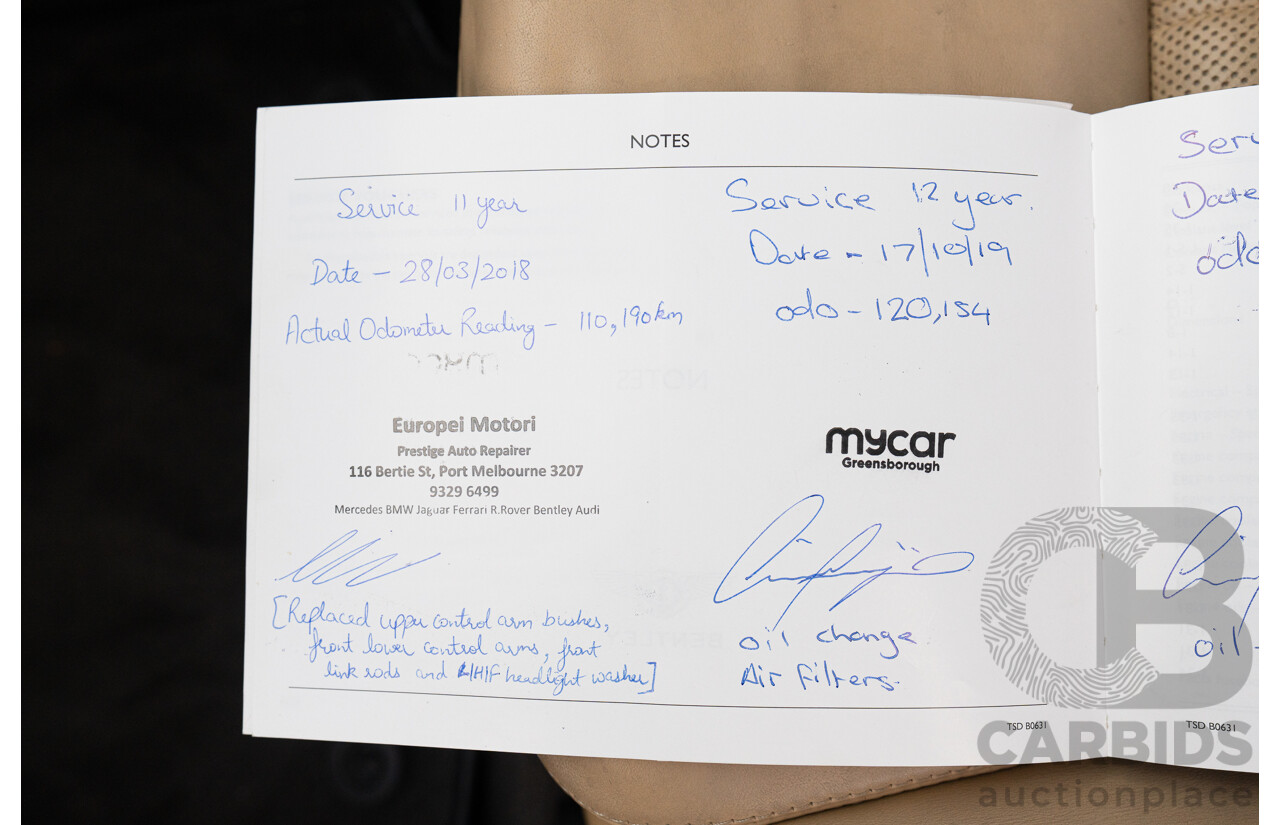 NOTES
Service 11 year
Date - 28/03/2018
Actual Odometer Reading - 110,190km
Europei Motori
Prestige Auto Repairer
116 Bertie St, Port Melbourne 3207
9329 6499
Mercedes BMW Jaguar Ferrari R.Rover Bentley Audi
[Replaced upper control arm bushes,
front lower control arms, front
link rods and L/H/F headlight washer]
Service 12 year.
Date - 17/10/19
odo - 120,154
mycar
Greensborough
oil change
Air filters.
TSD B0631
Serv
Date
odo
oil
TSD B0631
CB
CARBIDS
auctionplace